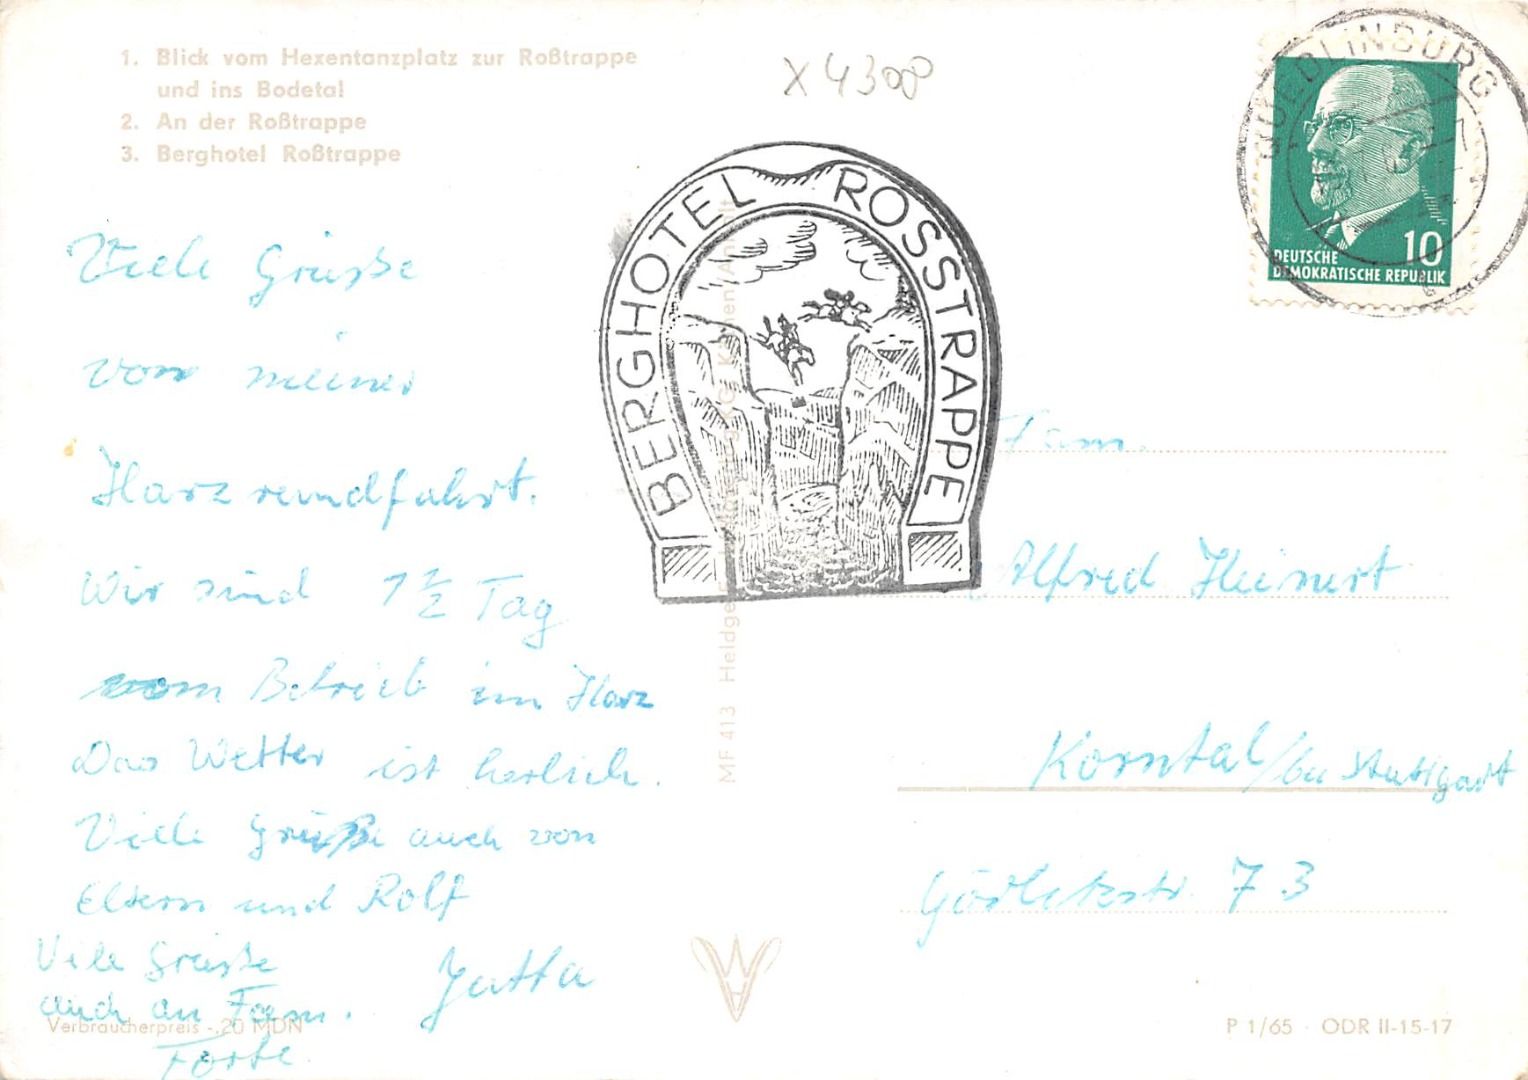 1. Blick vom Hexentanzplatz zur Roßtrappe
und ins Bodetal
2. An der Roßtrappe
3. Berghotel Roßtrappe
X 4308
QUEDLINBURG
10
DEUTSCHE
DEMOKRATISCHE REPUBLIK
BERGHOTEL ROSSTRAPPE
Viele Grüße
von meiner
Harzrundfahrt.
Wir sind 1 1/2 Tag
vom Betrieb im Harz
Das Wetter ist herlich.
Viele Grüße auch von
Eltern und Rolf
Jutta
Viele Grüße
auch an Fam.
Forte
Fam.
Alfred Heinert
Korntal/bei Stuttgart
Görlitzstr. 73
MF 413
Verbraucherpreis -.20 MDN
P 1/65 · ODR II-15-17